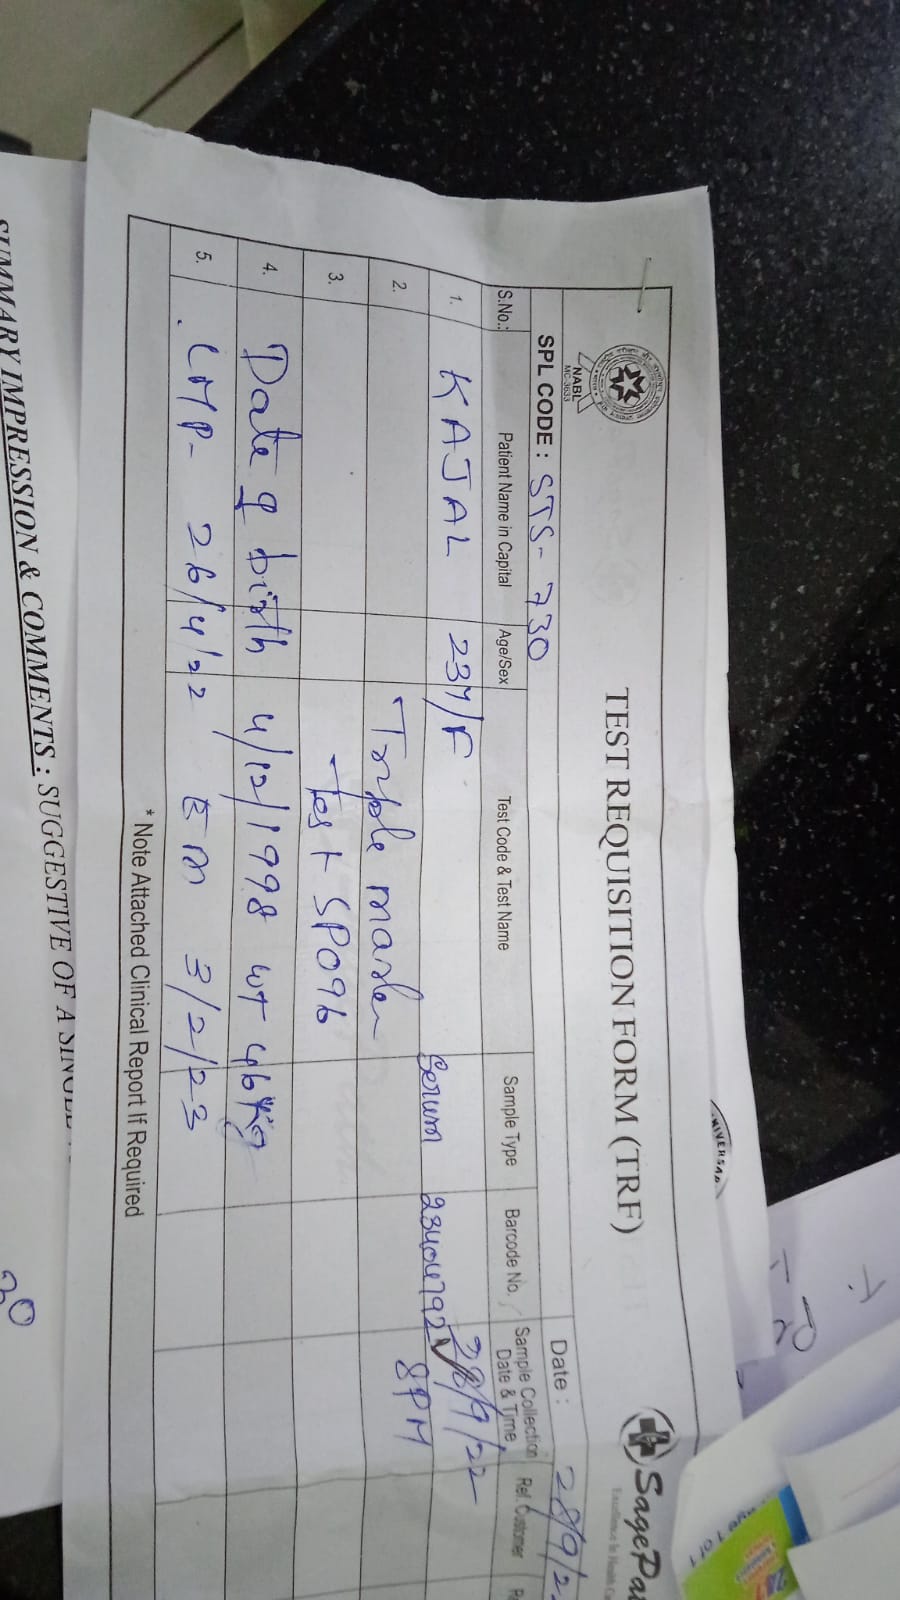 TEST REQUISITION FORM (TRF)
SagePa
NABL
MC-3633
SPL CODE : STS-730
Date : 28/9/2
S.No.: Patient Name in Capital Age/Sex Test Code & Test Name Sample Type Barcode No. Sample Collection Date & Time Ref. Customer
1. KAJAL 23Y/F Serum 23404792 28/9/22
2. Triple marker 8PM
3. Test SP096
4. Date of birth 4/12/1998 wt 46kg
5. LMP- 26/4/22 3/2/23
* Note Attached Clinical Report If Required
SUMMARY IMPRESSION & COMMENTS : SUGGESTIVE OF A
20